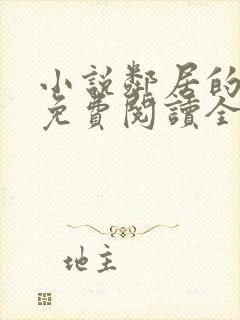 小說鄰居的
免費閱讀全
地主